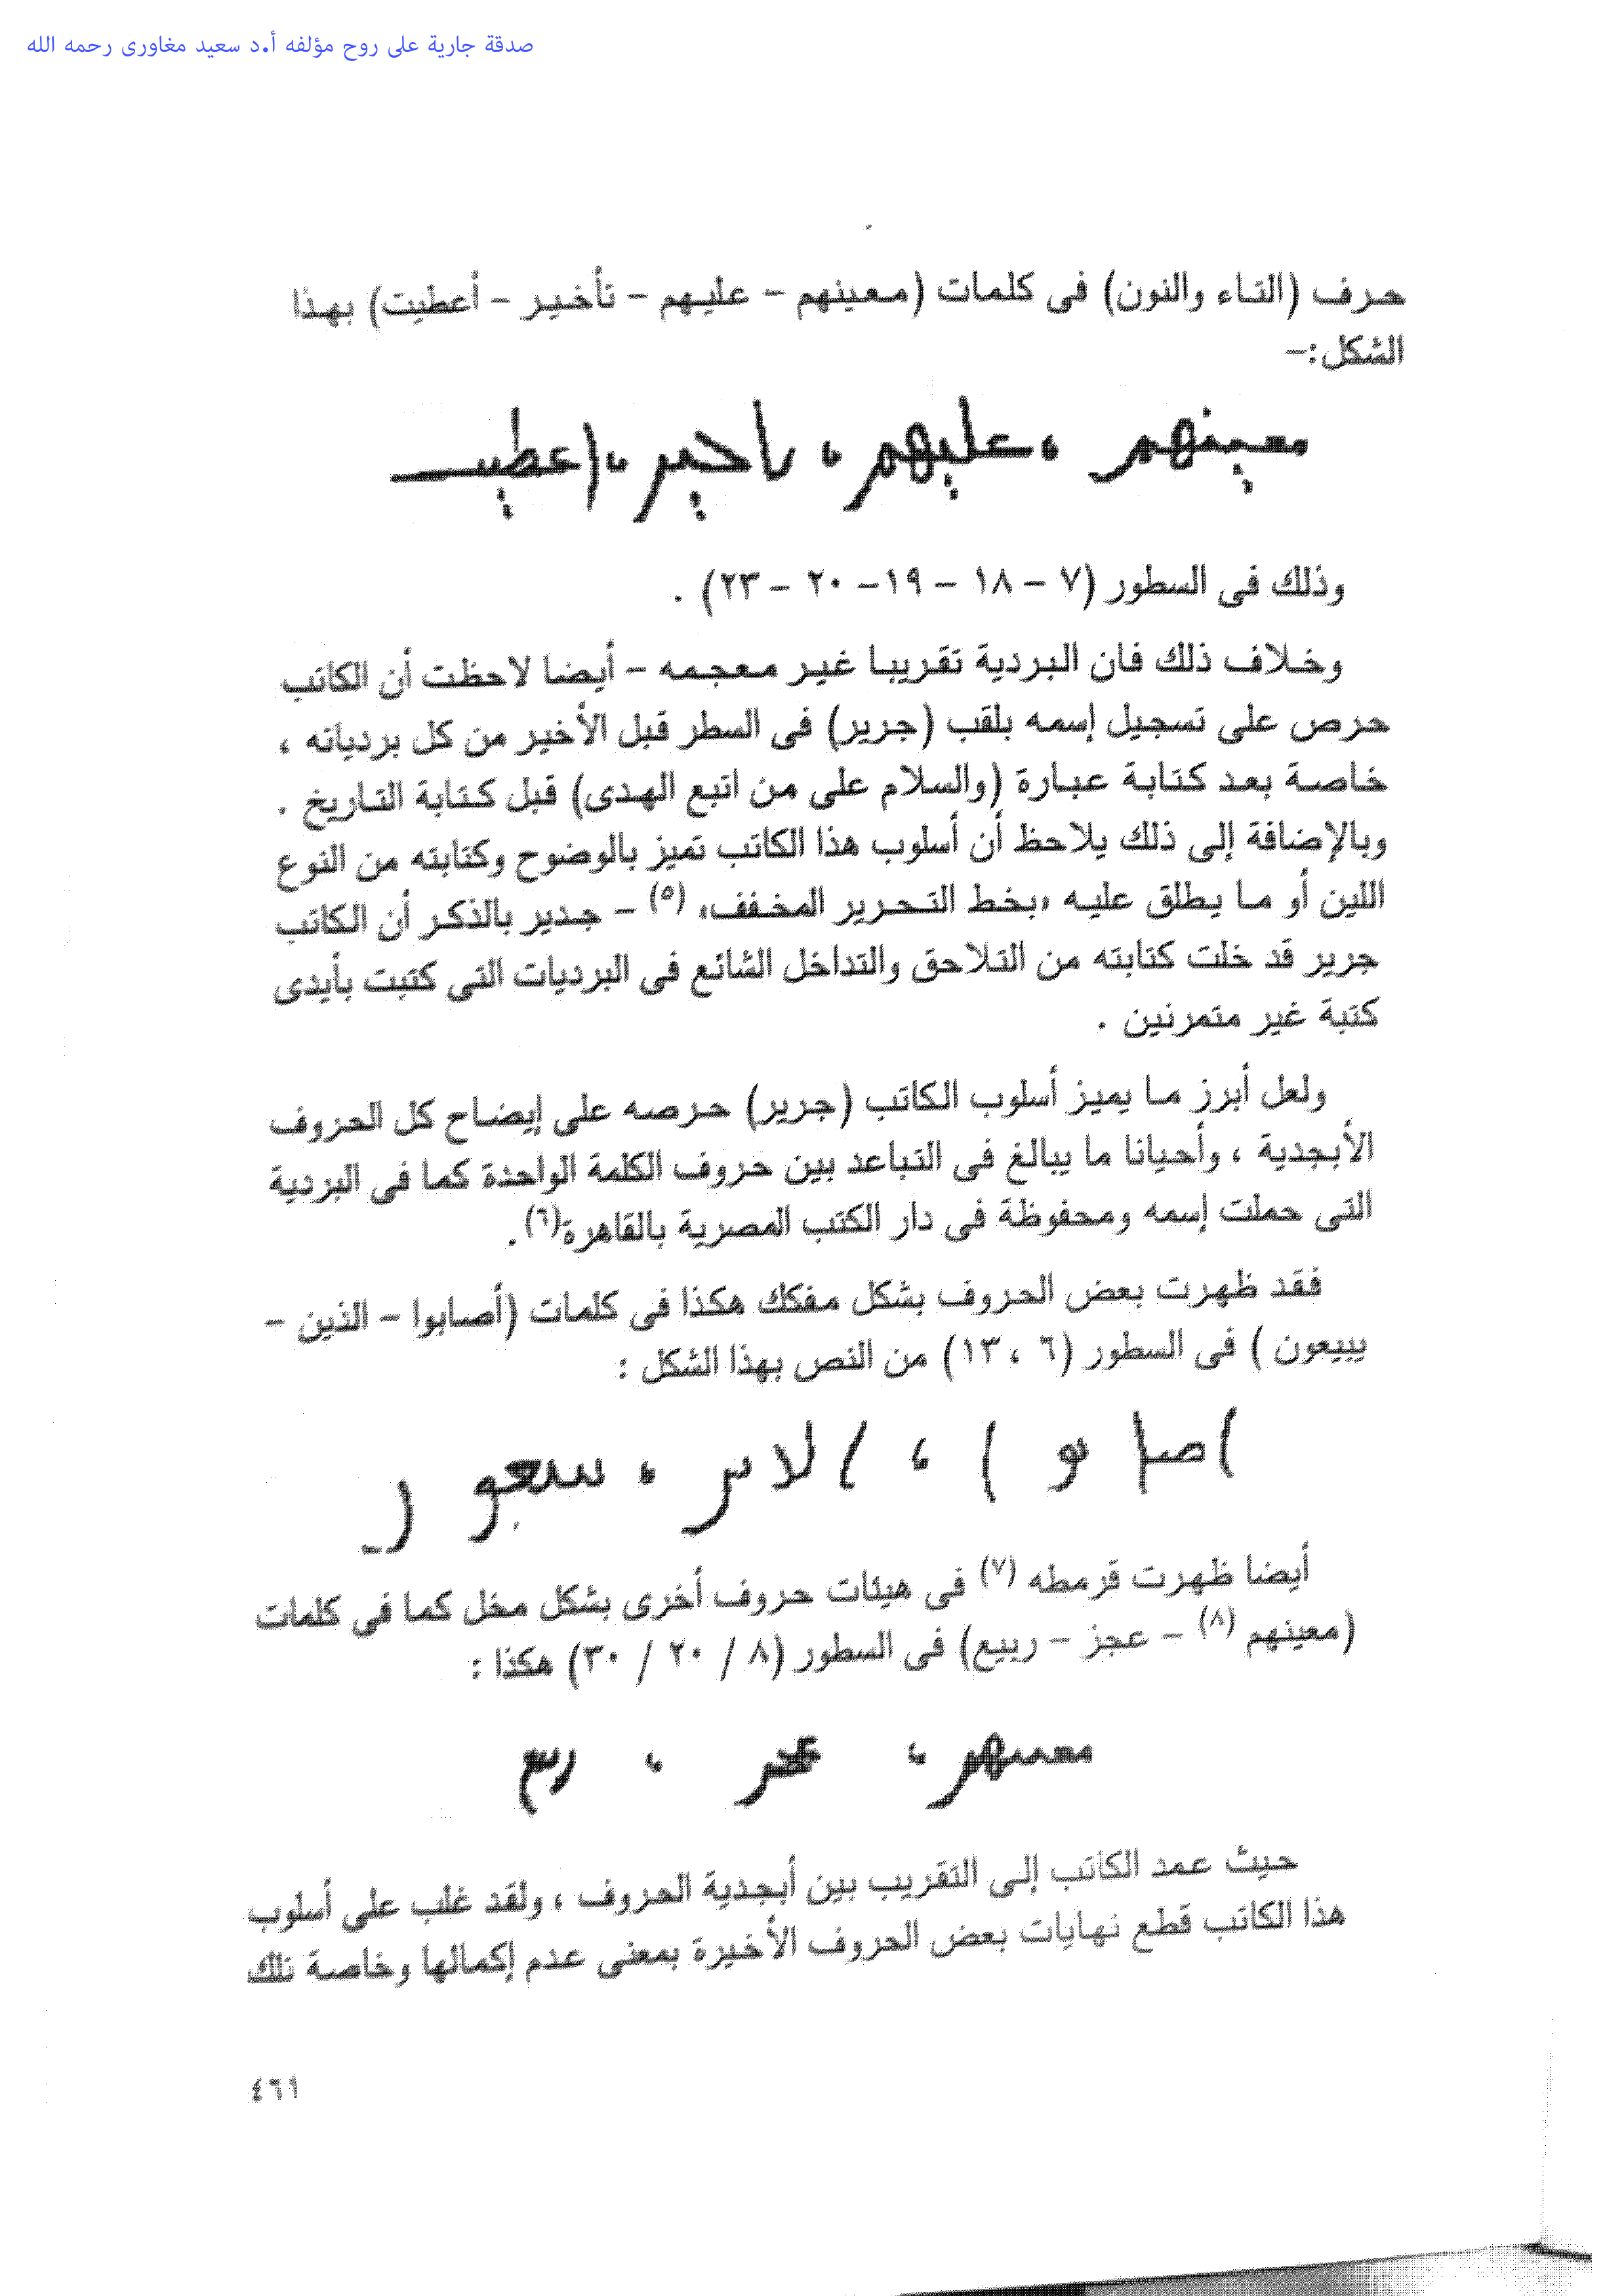 صدقة جارية على روح مؤلفه أ.د سعيد مغاورى رحمه الله
حرف (التاء والنون) فى كلمات (معينهم – عليهم – تأخير – أعطيت) بهذا
الشكل:–
معينهم ، عليهم ، راحير ، اعطيت
وذلك فى السطور (٧ – ١٨ – ١٩– ٢٠ – ٢٣) .
وخلاف ذلك فان البردية تقريبا غير معجمه – أيضا لاحظت أن الكاتب
حرص على تسجيل إسمه بلقب (جرير) فى السطر قبل الأخير من كل بردياته ،
خاصة بعد كتابة عبارة (والسلام على من اتبع الهدى) قبل كتابة التاريخ .
وبالإضافة إلى ذلك يلاحظ أن أسلوب هذا الكاتب تميز بالوضوح وكتابته من النوع
اللين أو ما يطلق عليه «بخط التحرير المخفف» (٥) – جدير بالذكر أن الكاتب
جرير قد خلت كتابته من التلاحق والتداخل الشائع فى البرديات التى كتبت بأيدى
كتبة غير متمرنين .
ولعل أبرز ما يميز أسلوب الكاتب (جرير) حرصه على إيضاح كل الحروف
الأبجدية ، وأحيانا ما يبالغ فى التباعد بين حروف الكلمة الواحدة كما فى البردية
التى حملت إسمه ومحفوظة فى دار الكتب المصرية بالقاهرة(٦).
فقد ظهرت بعض الحروف بشكل مفكك هكذا فى كلمات (أصابوا – الذين –
يبيعون ) فى السطور (٦ ، ١٣) من النص بهذا الشكل :
أيضا ظهرت قرمطه (٧) فى هيئات حروف أخرى بشكل مخل كما فى كلمات
(معينهم (٨) – عجز – ربيع) فى السطور (٨ / ٢٠ / ٣٠) هكذا :
حيث عمد الكاتب إلى التقريب بين أبجدية الحروف ، ولقد غلب على أسلوب
هذا الكاتب قطع نهايات بعض الحروف الأخيرة بمعنى عدم إكمالها وخاصة تلك
٤٦١